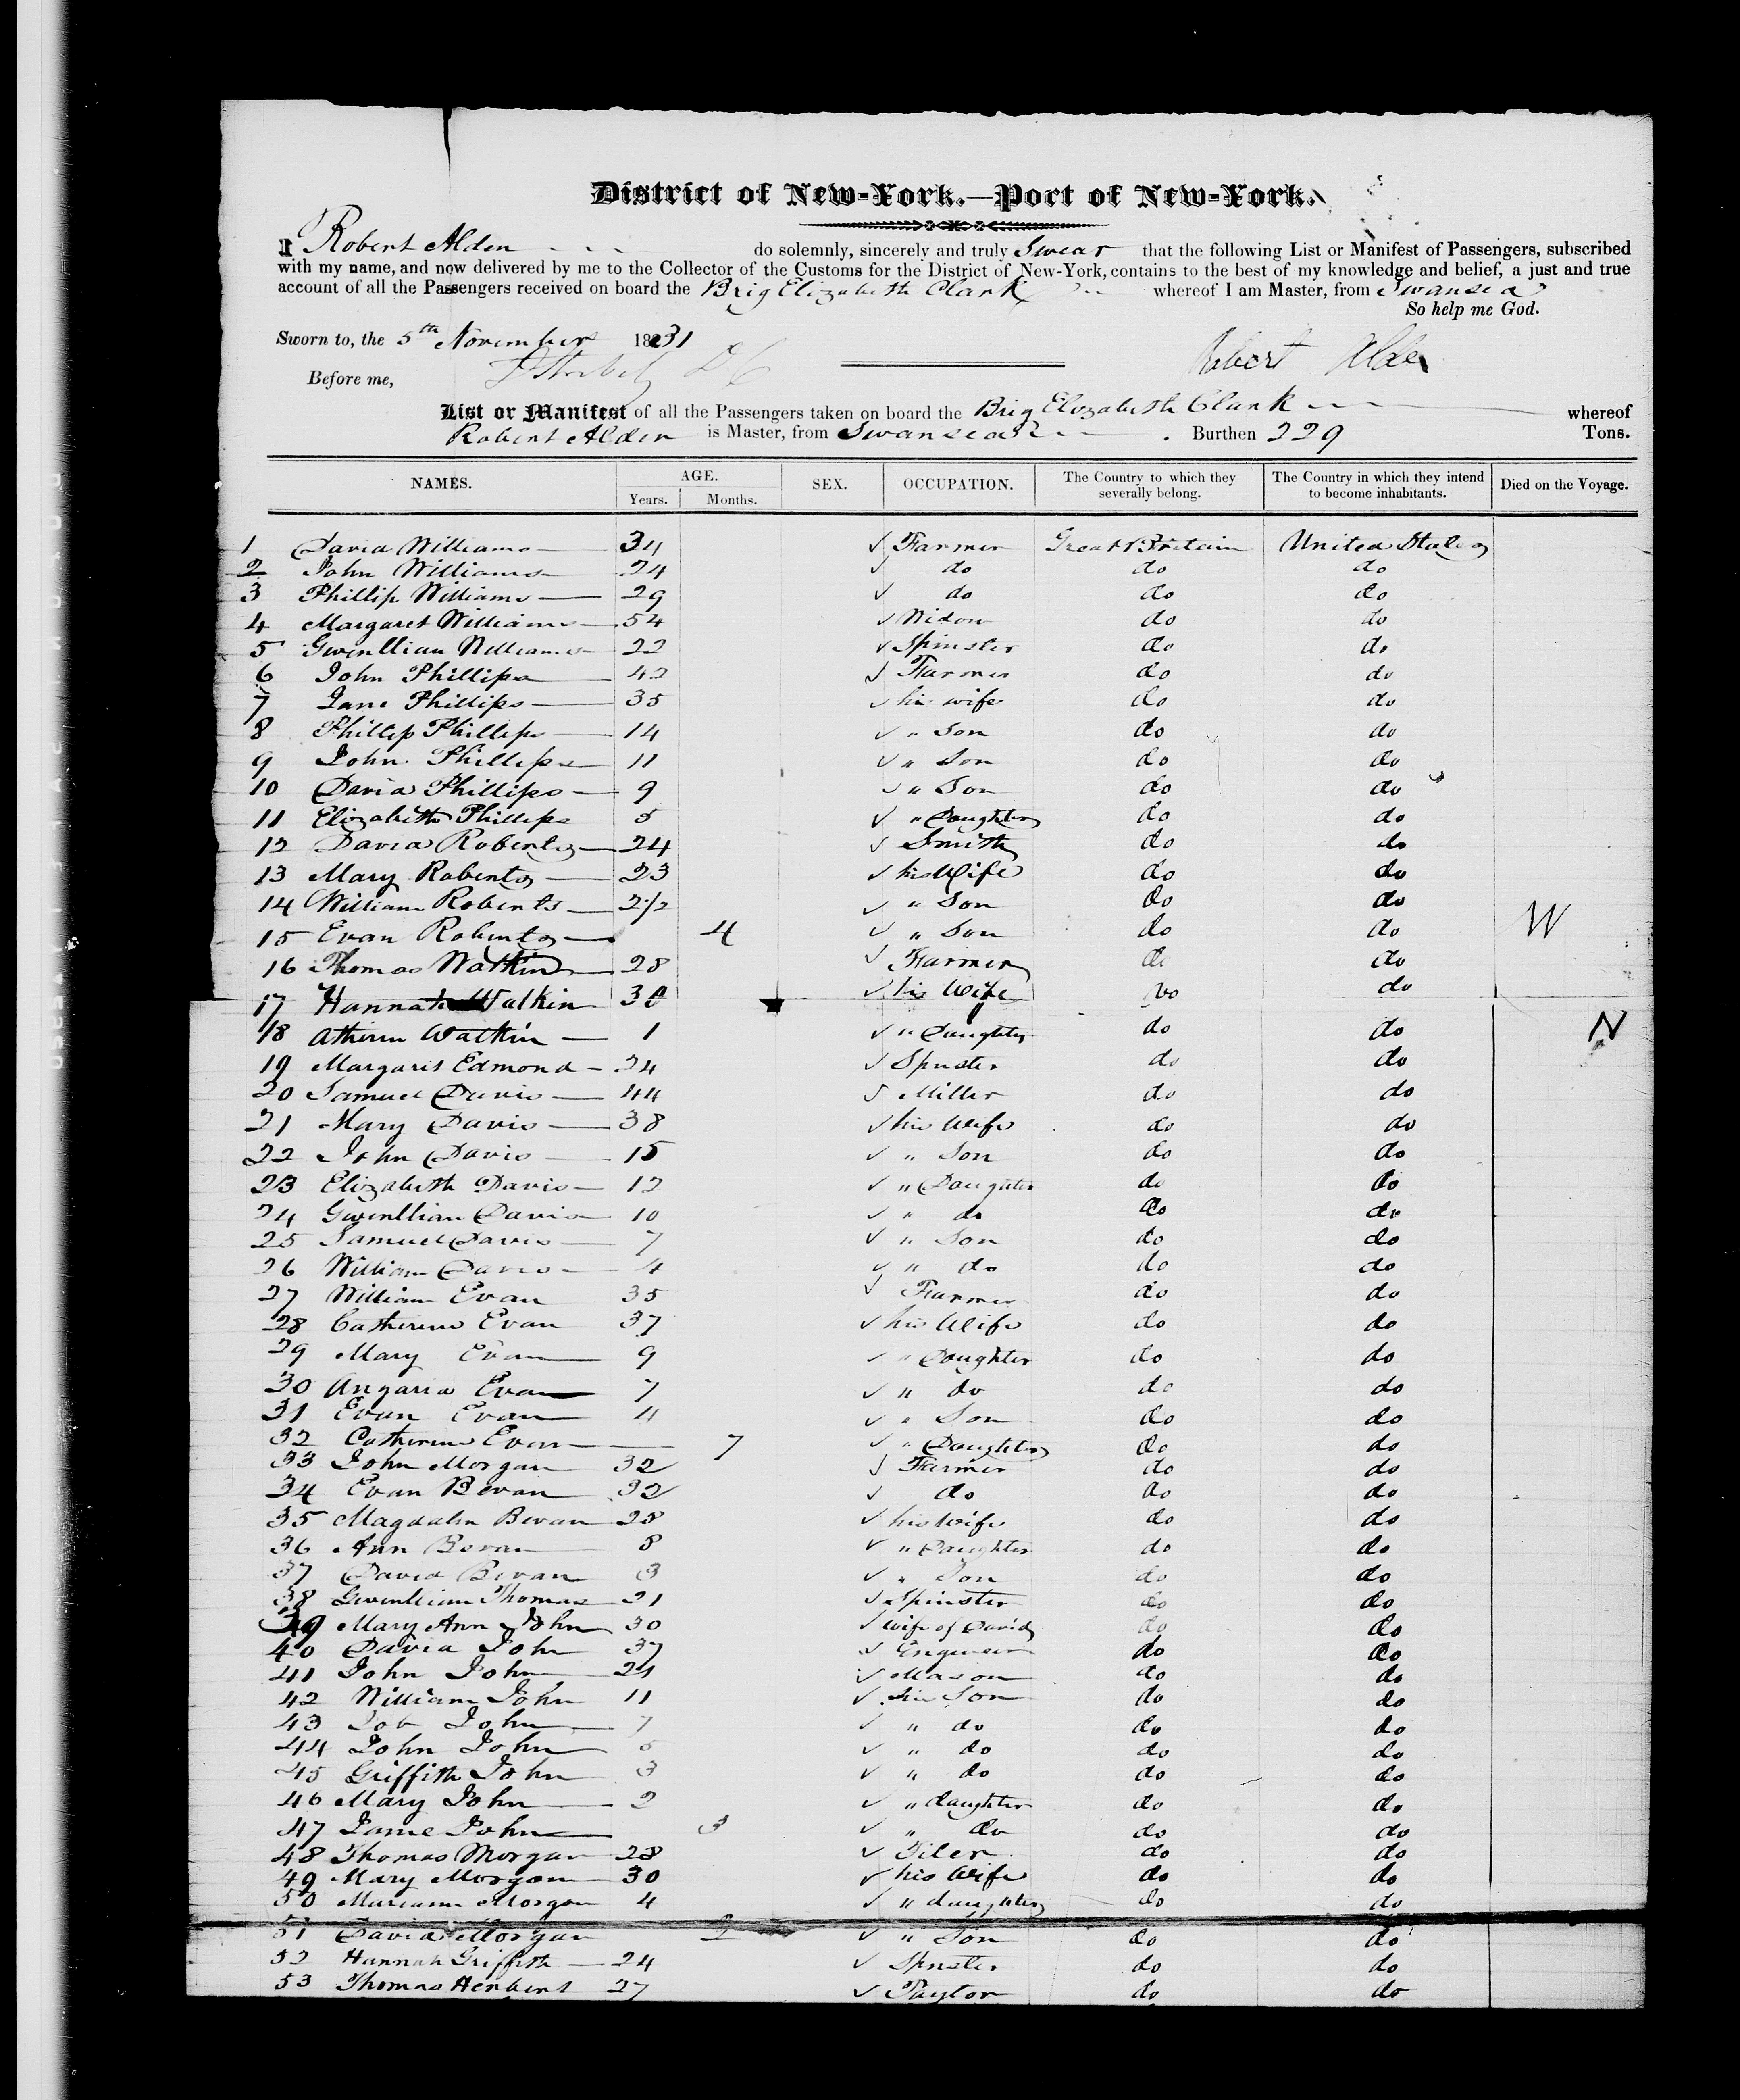 District of New-York.—Port of New-York.
I Robert Alden do solemnly, sincerely and truly Swear that the following List or Manifest of Passengers, subscribed
with my name, and now delivered by me to the Collector of the Customs for the District of New-York, contains to the best of my knowledge and belief, a just and true
account of all the Passengers received on board the Brig Elizabeth Clark whereof I am Master, from Swansea
So help me God.
Sworn to, the 5th November 1831
Before me, Robert Alden
List or Manifest of all the Passengers taken on board the Brig Elizabeth Clark whereof
Robert Alden is Master, from Swansea . Burthen 229 Tons.
NAMES. AGE. Years. Months. SEX. OCCUPATION. The Country to which they severally belong. The Country in which they intend to become inhabitants. Died on the Voyage.
1 David Williams 34 Farmer Great Britain United States
2 John Williams 24 do do do
3 Phillip Williams 29 do do do
4 Margaret Williams 54 Widow do do
5 Gwenllian Williams 22 Spinster do do
6 John Phillips 42 Farmer do do
7 Jane Phillips 35 his wife do do
8 Phillip Phillips 14 " Son do do
9 John Phillips 11 " Son do do
10 David Phillips 9 " Son do do
11 Elizabeth Phillips 5 " Daughter do do
12 David Roberts 24 Smith do do
13 Mary Roberts 23 his Wife do do
14 William Roberts 2½ " Son do do
15 Evan Roberts 4 " Son do do W
16 Thomas Watkin 28 Farmer do do
17 Hannah Watkin 30 his Wife do do
18 Watkin 1 " Daughter do do N
19 Margaret Edmond 24 Spnster do do
20 Samuel Davis 44 Miller do do
21 Mary Davis 38 his Wife do do
22 John Davis 15 " Son do do
23 Elizabeth Davis 12 " Daughter do do
24 Gwenllian Davis 10 " do do do
25 Samuel Davis 7 " Son do do
26 William Davis 4 " do do do
27 William Evan 35 Farmer do do
28 Catherine Evan 37 his Wife do do
29 Mary Evan 9 " Daughter do do
30 Angaria Evan 7 " do do do
31 Evan Evan 4 " Son do do
32 Catherine Evan 7 " Daughter do do
33 John Morgan 32 Farmer do do
34 Evan Bevan 32 do do do
35 Magdalin Bevan 28 his Wife do do
36 Ann Bevan 8 " Daughter do do
37 David Bevan 3 " Son do do
38 Gwenllian Thomas 21 Spinster do do
39 Mary Ann John 30 Wife of David do do
40 David John 37 Engineer do do
41 John John 21 Mason do do
42 William John 11 his Son do do
43 Job John 7 " do do do
44 John John 5 " do do do
45 Griffith John 3 " do do do
46 Mary John 2 " daughter do do
47 Jane John 3 " do do do
48 Thomas Morgan 28 Tiler do do
49 Mary Morgan 30 his Wife do do
50 Mariann Morgan 4 " daughter do do
51 David Morgan 2 " Son do do
52 Hannah Griffith 24 Spnster do do
53 Thomas Herbert 27 Taylor do do